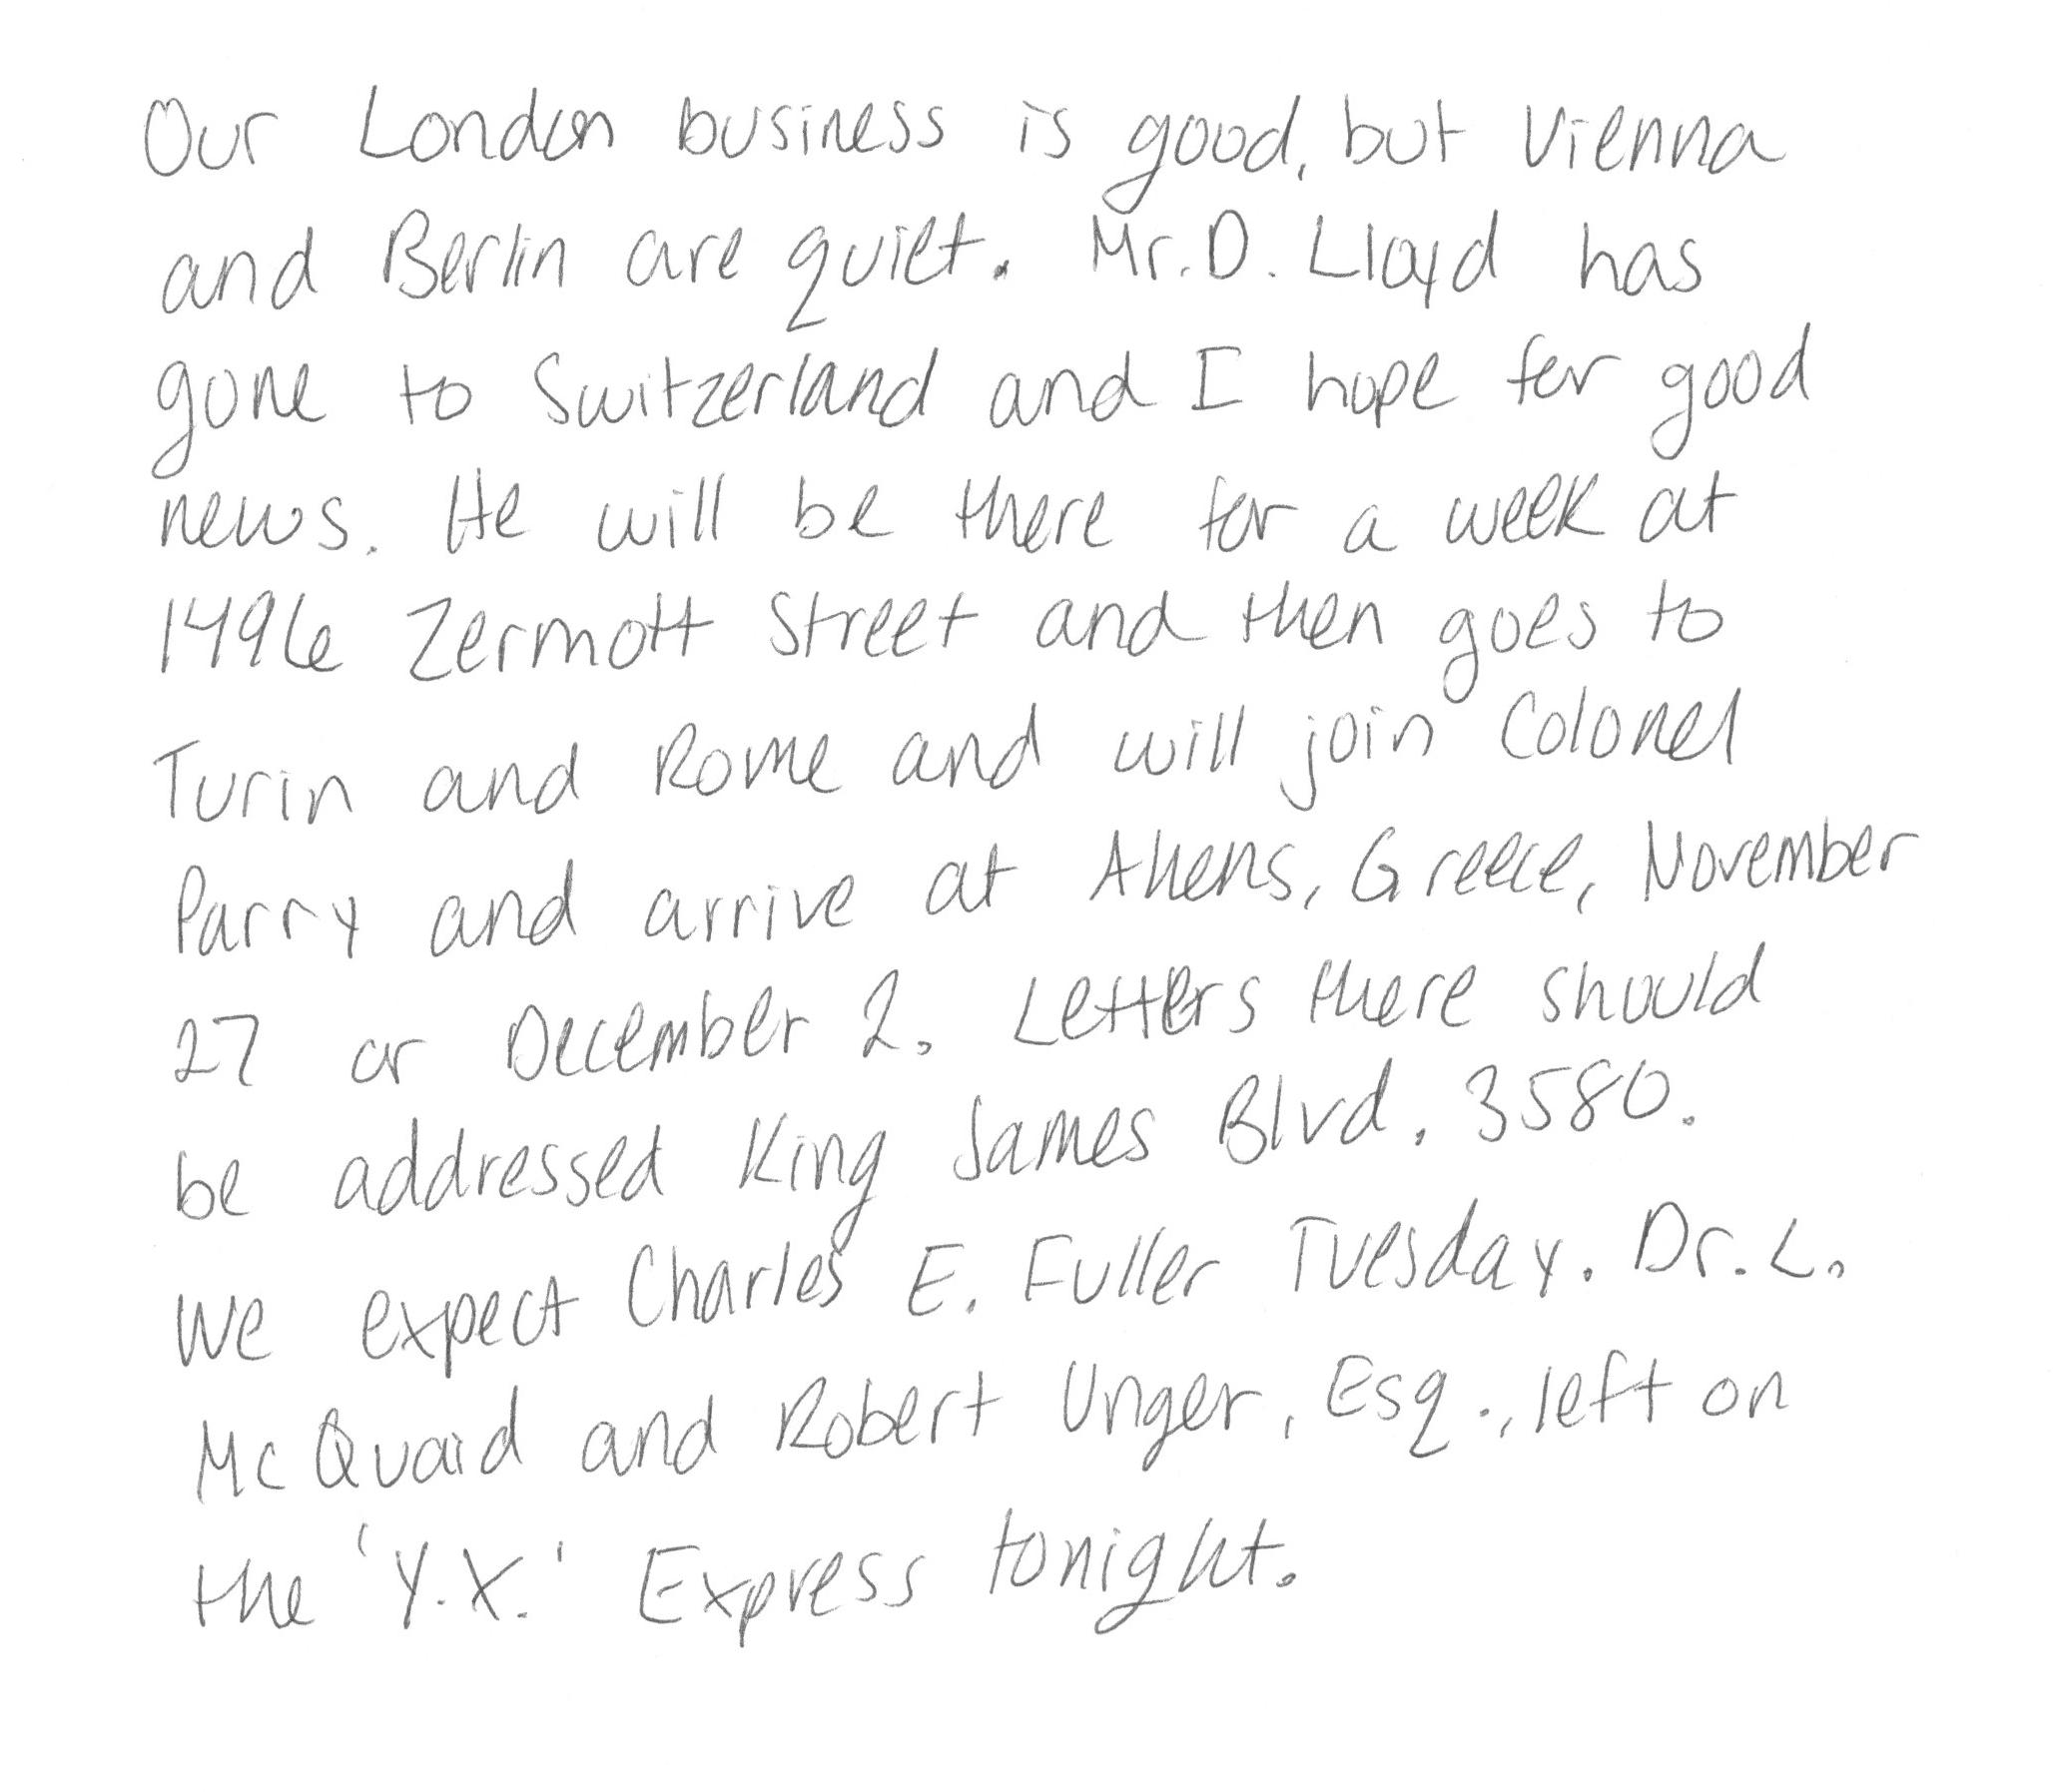 Our London business is good, but Vienna
and Berlin are quiet. Mr. D. Lloyd has
gone to Switzerland and I hope for good
news. He will be there for a week at
1496 Zermott Street and then goes to
Turin and Rome and will join Colonel
Parry and arrive at Athens, Greece, November
27 or December 2. Letters there should
be addressed King James Blvd. 3580.
We expect Charles E. Fuller Tuesday. Dr. L.
McQuaid and Robert Unger, Esq., left on
the 'Y.X.' Express tonight.